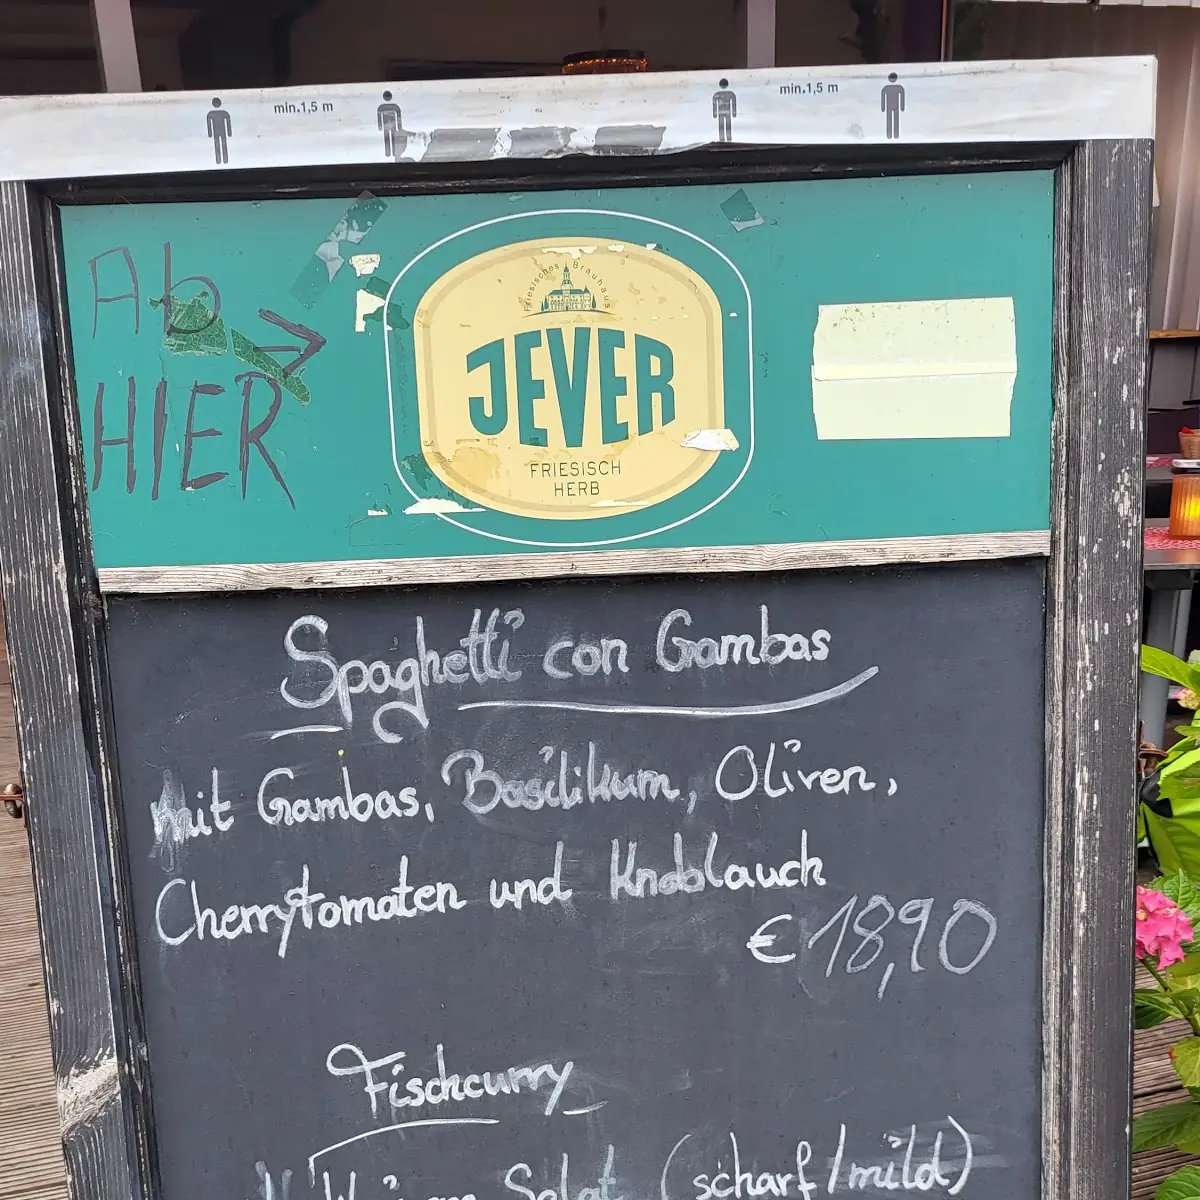 min.1,5 m
min.1,5 m
Ab
HIER
Friesisches Brauhaus
JEVER
FRIESISCH
HERB
Spaghetti con Gambas
mit Gambas, Basilikum, Oliven,
Cherrytomaten und Knoblauch
€ 18,90
Fischcurry
Salat (scharf/mild)